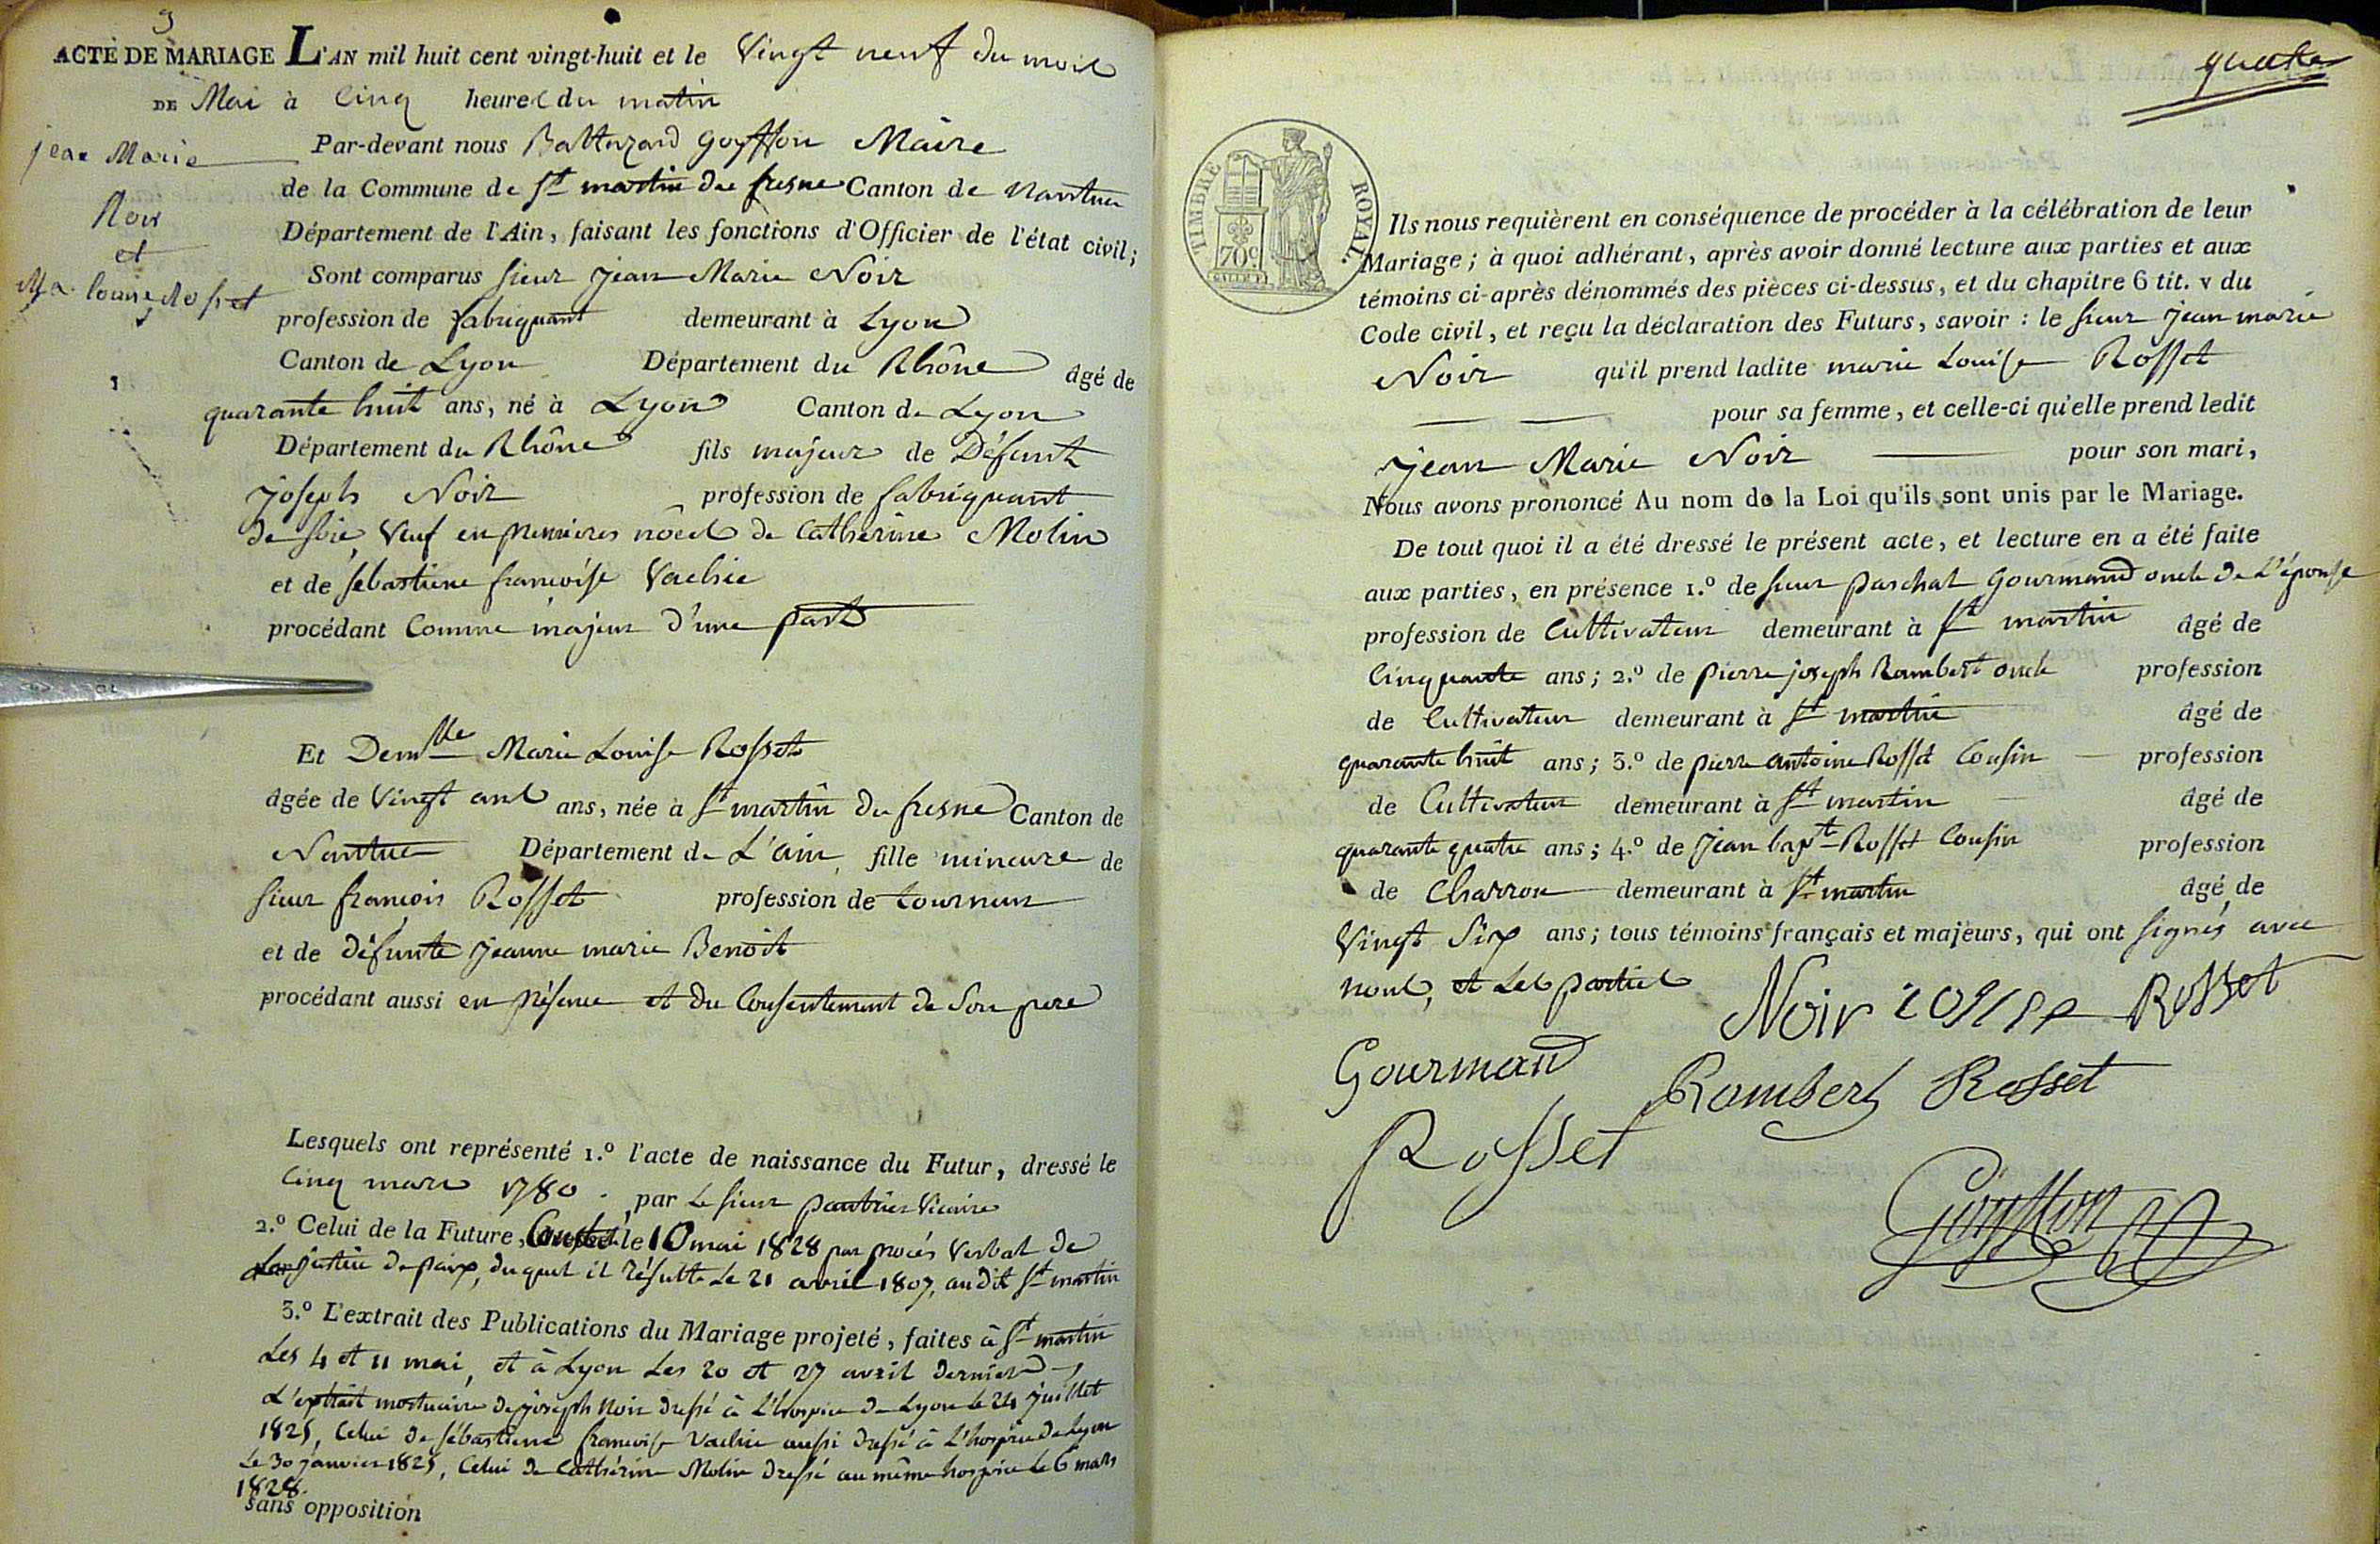 3
ACTE DE MARIAGE L'AN mil huit cent vingt-huit et le Vingt neuf du mois
DE Mai à Cinq heures du matin
jean Marie
Noir
et
Ma. louise Rosset
Par-devant nous Baltazard Goyffon Maire
de la Commune de St martin du fresne Canton de Nantua
Département de l'Ain, faisant les fonctions d'Officier de l'état civil;
Sont comparus sieur Jean Marie Noir
profession de fabriquant demeurant à Lyon
Canton de Lyon Département du Rhône âgé de
quarante huit ans, né à Lyon Canton de Lyon
Département du Rhône fils majeur de Défunt
Joseph Noir profession de fabriquant
de soie, Veuf en premières nôces de Catherine Molin
et de sébastiene françoise Vachie
procédant Comme majeur d'une part
Et Demlle Marie Louise Rosset
âgée de Vingt ans ans, née à St martin du fresne Canton de
Nantua Département de L'ain fille mineure de
sieur françois Rosset profession de tourneur
et de défunte Jeanne marie Benoit
procédant aussi en présence et du Consentement de Son pere
Lesquels ont représenté 1.º l'acte de naissance du Futur, dressé le
Cinq mars 1780. par le sieur Vicaire
2.º Celui de la Future, le 10 mai 1828 par procès Verbal de
La justice de paix, duquel il résulte le 21 avril 1807, audit St martin
3.º L'extrait des Publications du Mariage projeté, faites à St martin
Les 4 et 11 mai, et à Lyon Les 20 et 27 avril derniers,
L'extrait mortuaire de joseph Noir dressé à L'hospice de Lyon le 24 juillet
1825, Celui de sébastiene françoise Vachie aussi dressé à L'hospice de Lyon
Le 30 janvier 1825, Celui de Cathérine Molin dressé au même hospice le 6 mars
1828.
sans opposition
quatre
TIMBRE ROYAL.
70c
Ils nous requièrent en conséquence de procéder à la célébration de leur
Mariage; à quoi adhérant, après avoir donné lecture aux parties et aux
témoins ci-après dénommés des pièces ci-dessus, et du chapitre 6 tit. v du
Code civil, et reçu la déclaration des Futurs, savoir : le sieur Jean marie
Noir qu'il prend ladite marie Louise Rosset
pour sa femme, et celle-ci qu'elle prend ledit
Jean Marie Noir pour son mari,
Nous avons prononcé Au nom de la Loi qu'ils sont unis par le Mariage.
De tout quoi il a été dressé le présent acte, et lecture en a été faite
aux parties, en présence 1.º de sieur paschal Gourmand oncle de L'épouse
profession de Cultivateur demeurant à St martin âgé de
Cinquante ans; 2.º de pierre joseph Rambert oncle profession
de Cultivateur demeurant à St martin âgé de
quarante huit ans; 3.º de pierre antoine Rosset Cousin profession
de Cultivateur demeurant à St martin âgé de
quarante quatre ans; 4.º de Jean bapt Rosset Cousin profession
de Charron demeurant à St martin âgé de
Vingt Six ans; tous témoins français et majeurs, qui ont signés avec
nous, et Les parties
Noir Rosset
Gourmand
Rambert Rosset
Rosset
Goyffon